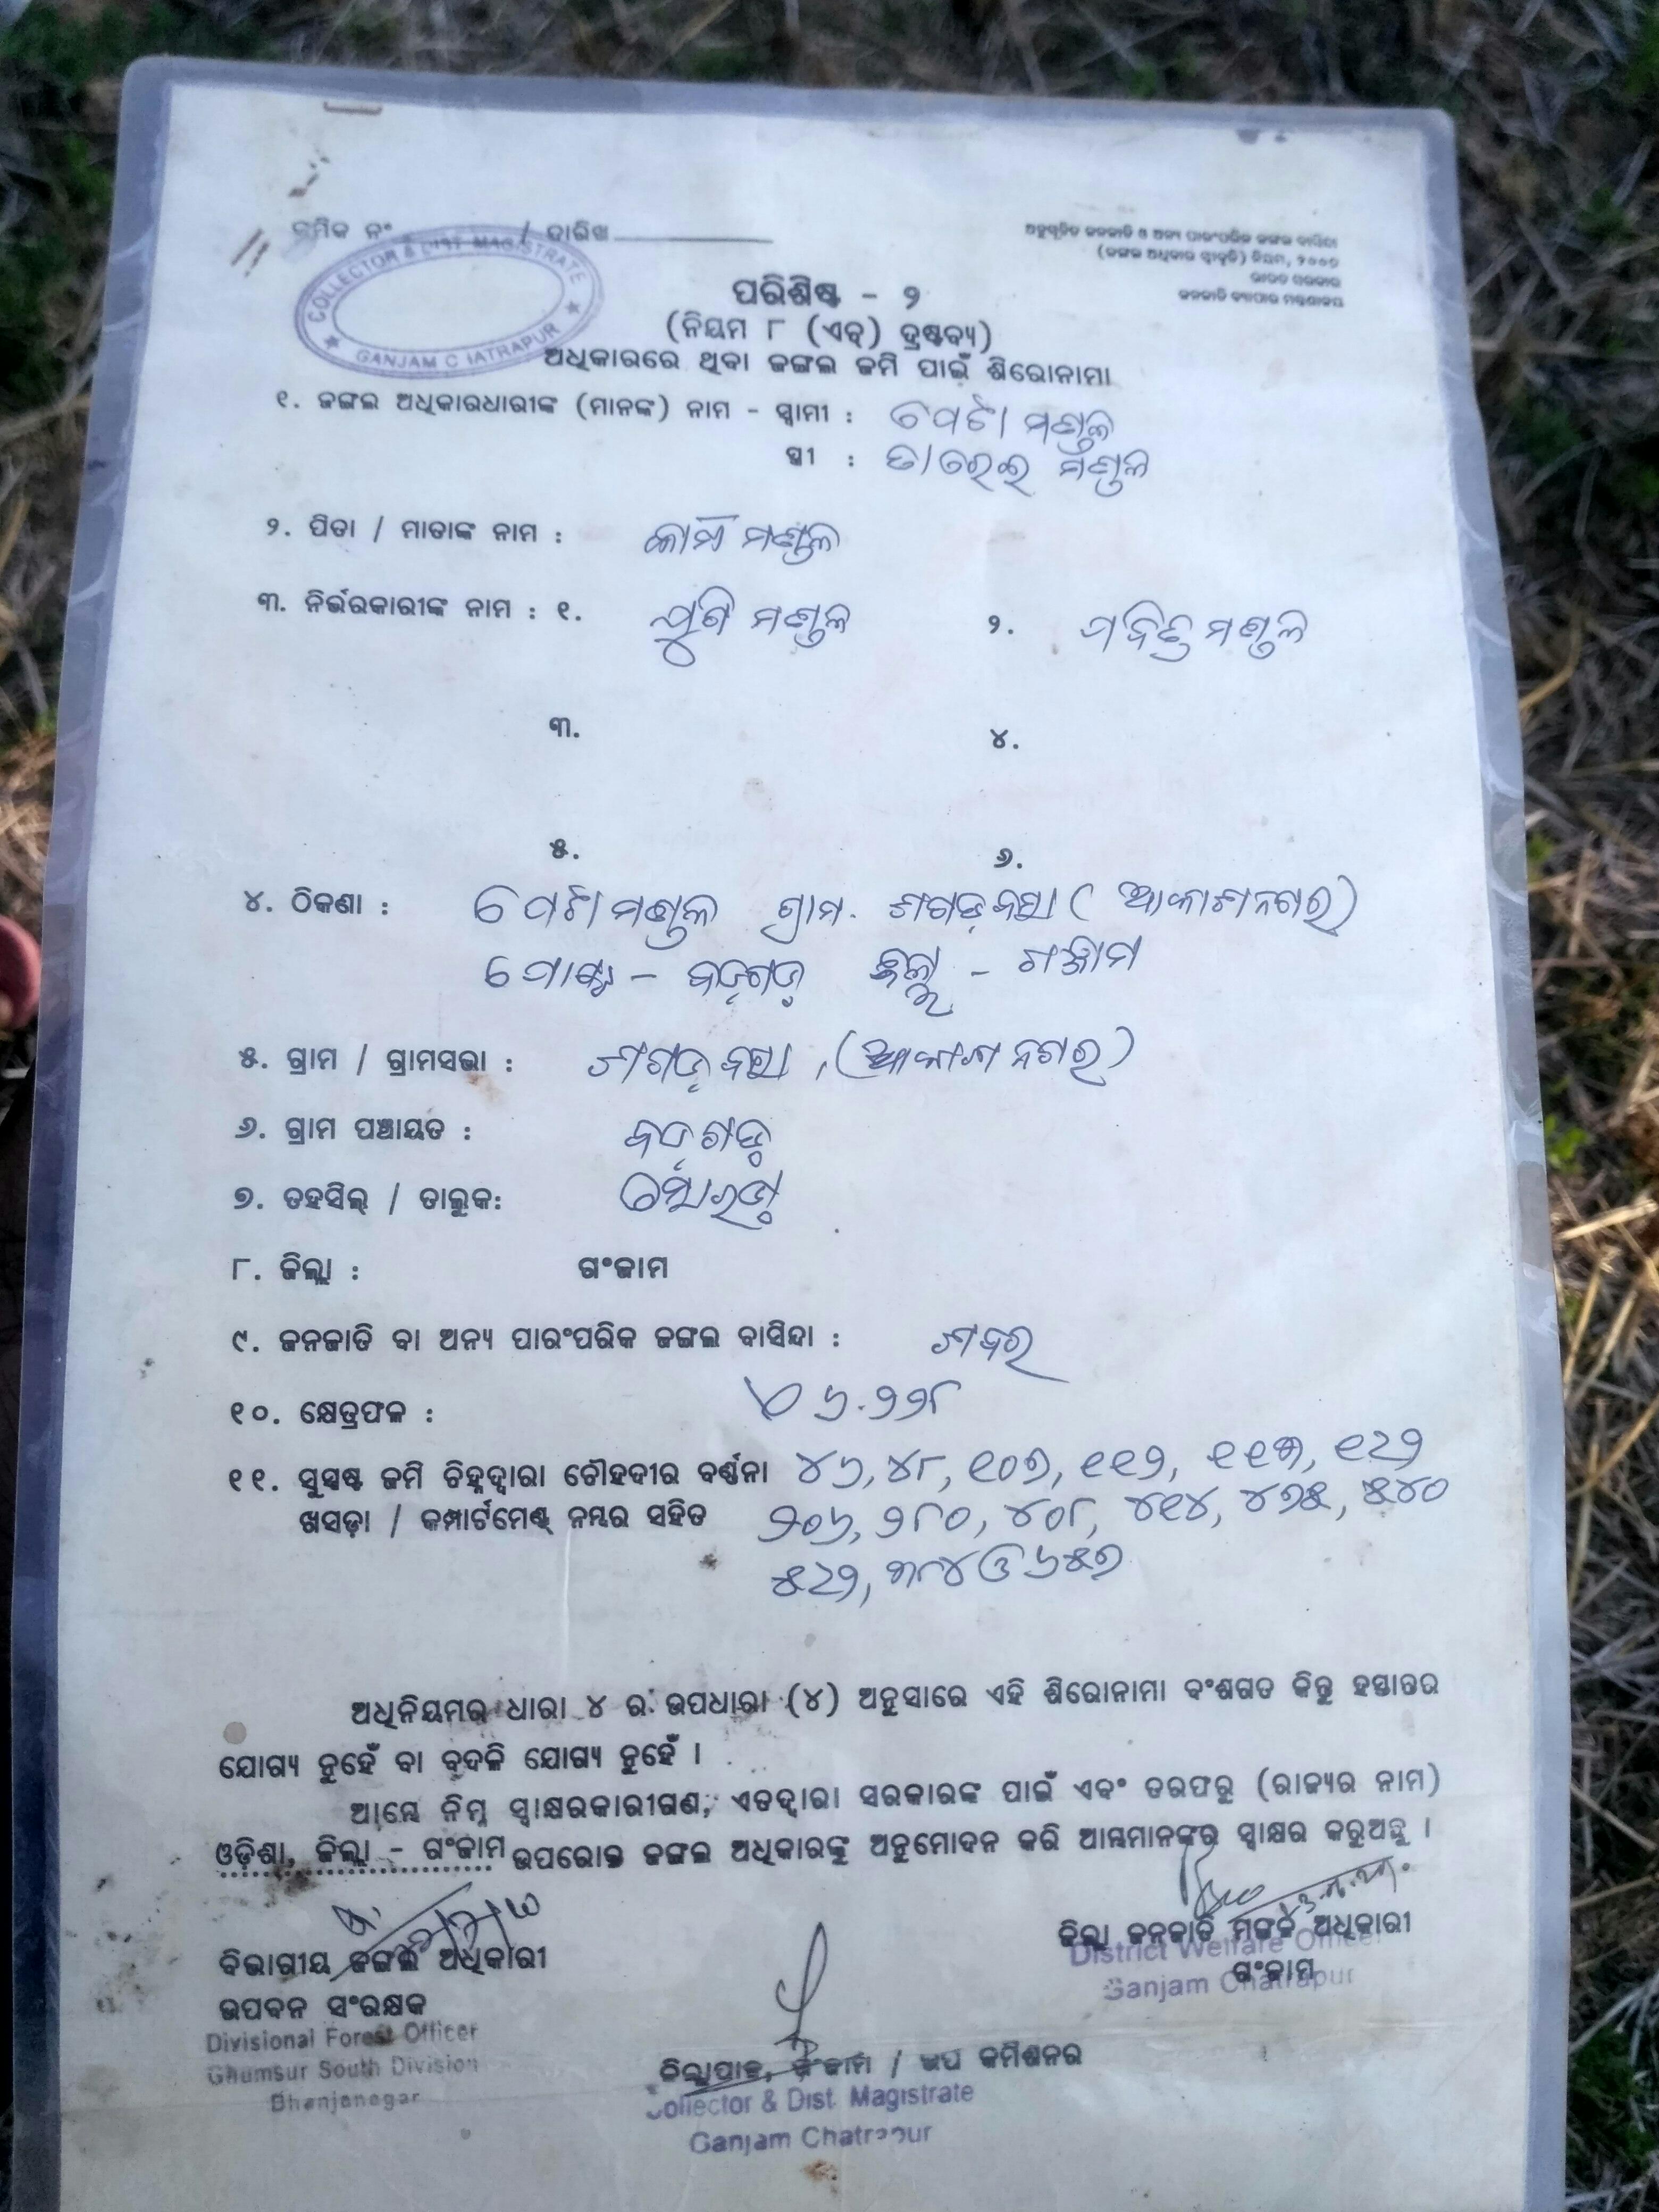 କ୍ରମିକ ନଂ / ତାରିଖ
COLLECTOR & DIST MAGISTRATE
GANJAM C IATRAPUR
ଅନୁସୂଚିତ ଜନଜାତି ଓ ଅନ୍ୟ ପାରଂପରିକ ଜଙ୍ଗଲ ବାସିନ୍ଦା
(ଜଙ୍ଗଲ ଅଧିକାର ସ୍ୱୀକୃତି) ନିୟମ, ୨୦୦୭
ଭାରତ ସରକାର
ଜନଜାତି ବ୍ୟାପାର ମନ୍ତ୍ରଣାଳୟ
ପରିଶିଷ୍ଟ - ୨
(ନିୟମ ୮ (ଏଚ୍) ଦ୍ରଷ୍ଟବ୍ୟ)
ଅଧିକାରରେ ଥିବା ଜଙ୍ଗଲ ଜମି ପାଇଁ ଶିରୋନାମା
୧. ଜଙ୍ଗଲ ଅଧିକାରଧାରୀଙ୍କ (ମାନଙ୍କ) ନାମ - ସ୍ୱାମୀ : ମଣ୍ଡଳ
ସ୍ତ୍ରୀ : ମଣ୍ଡଳ
୨. ପିତା / ମାତାଙ୍କ ନାମ : ମଣ୍ଡଳ
୩. ନିର୍ଭରକାରୀଙ୍କ ନାମ : ୧. ମଣ୍ଡଳ ୨. ମଣ୍ଡଳ
୩. ୪.
୫. ୬.
୪. ଠିକଣା : ମଣ୍ଡଳ ଗ୍ରାମ. (ଆକାଶନଗର)
ପୋଷ୍ଟ - ବଡ଼ଗଡ଼ ଜିଲ୍ଲା - ଗଞ୍ଜାମ
୫. ଗ୍ରାମ / ଗ୍ରାମସଭା : (ଆକାଶ ନଗର)
୬. ଗ୍ରାମ ପଞ୍ଚାୟତ : ବଡ଼ଗଡ଼
୭. ତହସିଲ୍ / ତାଲୁକ: ସୋରଡ଼ା
୮. ଜିଲ୍ଲା : ଗଂଜାମ
୯. ଜନଜାତି ବା ଅନ୍ୟ ପାରଂପରିକ ଜଙ୍ଗଲ ବାସିନ୍ଦା : ଶବର
୧୦. କ୍ଷେତ୍ରଫଳ : ୬.୨୨୮
୧୧. ସୁସ୍ପଷ୍ଟ ଜମି ଚିହ୍ନଦ୍ୱାରା ଚୌହଦୀର ବର୍ଣ୍ଣନା ୪୬, ୪୮, ୧୦୭, ୧୧୨, ୧୧୩, ୧୨୨
ଖସଡ଼ା / କମ୍ପାର୍ଟମେଣ୍ଟ୍ ନମ୍ବର ସହିତ ୨୦୬, ୨୮୦, ୪୦୮, ୪୧୪, ୪୭୫, ୫୪୦
୫୨୨, ୩୮୪ ଓ ୬୫୭
ଅଧିନିୟମର ଧାରା ୪ ର ଉପଧାରା (୪) ଅନୁସାରେ ଏହି ଶିରୋନାମା ବଂଶଗତ କିନ୍ତୁ ହସ୍ତାନ୍ତର
ଯୋଗ୍ୟ ନୁହେଁ ବା ବଦଳି ଯୋଗ୍ୟ ନୁହେଁ ।
ଆମ୍ଭେ ନିମ୍ନ ସ୍ୱାକ୍ଷରକାରୀଗଣ, ଏତଦ୍ୱାରା ସରକାରଙ୍କ ପାଇଁ ଏବଂ ତରଫରୁ (ରାଜ୍ୟର ନାମ)
ଓଡ଼ିଶା, ଜିଲ୍ଲା - ଗଂଜାମ ଉପରୋକ୍ତ ଜଙ୍ଗଲ ଅଧିକାରକୁ ଅନୁମୋଦନ କରି ଆମ୍ଭମାନଙ୍କର ସ୍ୱାକ୍ଷର କରୁଅଛୁ ।
ବିଭାଗୀୟ ଜଙ୍ଗଲ ଅଧିକାରୀ
ଉପବନ ସଂରକ୍ଷକ
Divisional Forest Officer
Ghumsur South Division
Bhanjanagar
ଜିଲ୍ଲାପାଳ, ଗଂଜାମ / ଉପ କମିଶନର
Collector & Dist. Magistrate
Ganjam Chatrapur
ଜିଲ୍ଲା ଜନଜାତି ମଙ୍ଗଳ ଅଧିକାରୀ
ଗଂଜାମ
District Welfare Officer
Ganjam Chatrapur